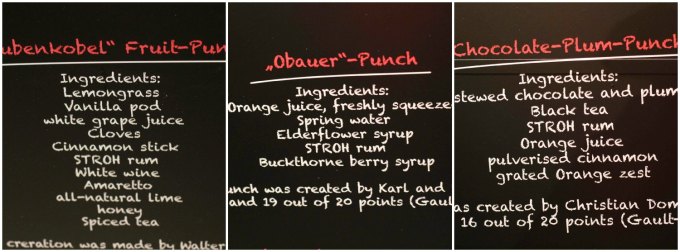 ubenkobel" Fruit-Pun
Ingredients:
Lemongrass
Vanilla pod
white grape juice
Cloves
Cinnamon stick
STROH rum
White wine
Amaretto
all-natural lime
honey
Spiced tea
creration was made by Walter
„Obauer"-Punch
Ingredients:
Orange juice, freshly squeeze
Spring water
Elderflower syrup
STROH rum
Buckthorne berry syrup
unch was created by Karl and
and 19 out of 20 points (Gaul
Chocolate-Plum-Punch
Ingredients:
stewed chocolate and plum
Black tea
STROH rum
Orange juice
pulverised cinnamon
grated Orange zest
as created by Christian Dom
16 out of 20 points (Gault-